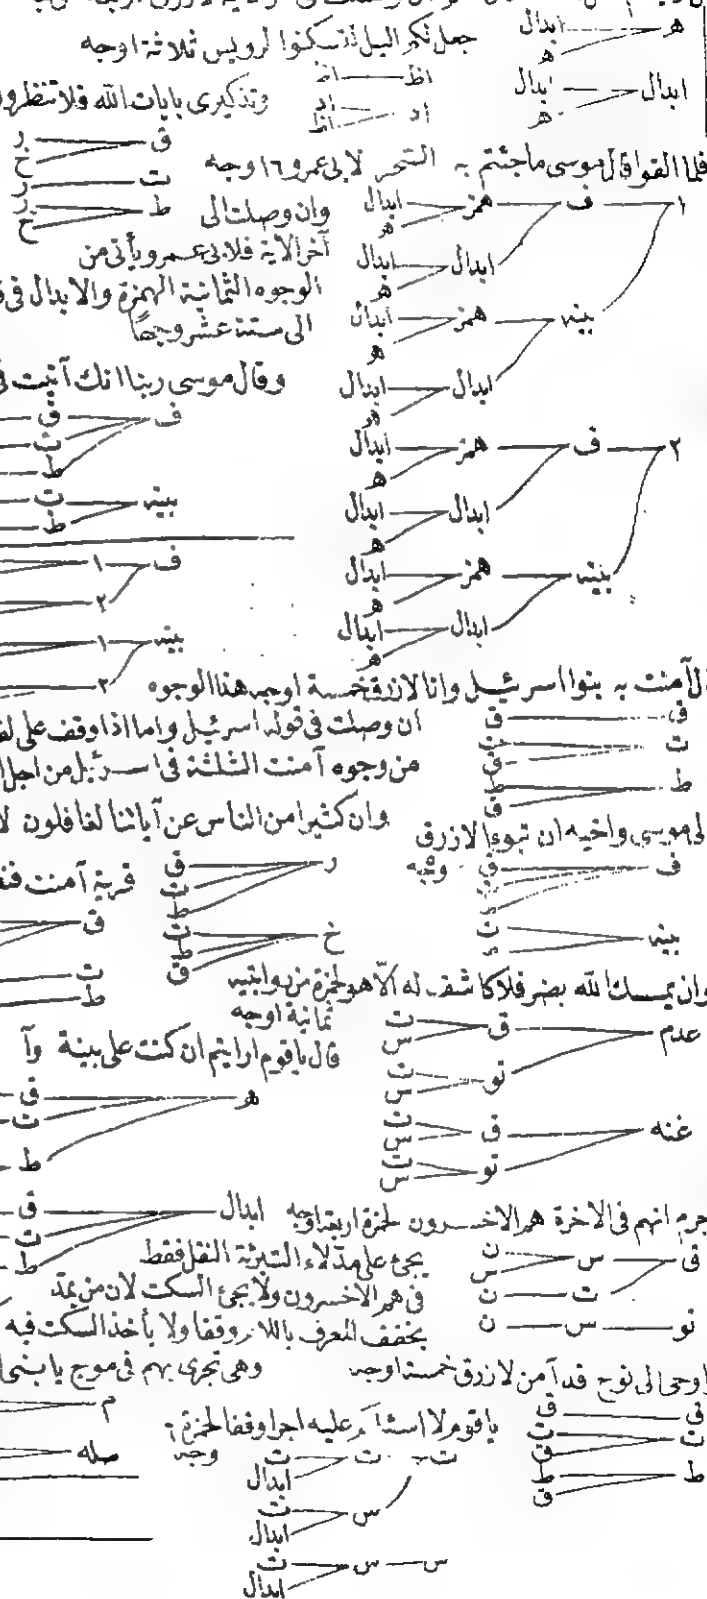 هر ابدال
هر
جعل لكم اليل لتسكنوا لرويس ثلاثة اوجه
ابدال ابدال
هر
اظ اظ
اد اد
اظ
وتذكيرى بايات الله فلا تنظرون
ق ر
خ
ت ر
ط ر
خ
فلما القوا قال موسى ماجئتم به السحر لابى عمرو ١٦ اوجه
١ ف همز ابدال
هر
ابدال ابدال
هر
بينه همز ابدال
هر
ابدال ابدال
هر
٢ ف همز ابدال
هر
ابدال ابدال
هر
بينه همز ابدال
هر
ابدال ابدال
هر
وان وصلت الى
آخر الآية فلابى عمرو يأتى من
الوجوه الثمانية الهمزة والابدال فى
الى ستة عشر وجها
وقال موسى ربنا انك آتيت
ف ق
ت
ط
بينه ت
ط
ف ١
٢
بينه ١
٢
آمنت به بنوا اسرئيل وانا لازرق خمسة اوجه هذا الوجوه
ق ق
ت ت
ق
ط ط
ق
ان وصلت فى قوله اسرئيل واما اذا وقف على
من وجوه آمنت الثلثة فى اسرئيل من اجل
وان كثيرا من الناس عن آياتنا لغافلون
موسى واخيه ان تبوءا لازرق
وجه
ف ق
بينه ت
ر ق
ت
ط
خ ت
ط
ق
قرية آمنت
ق
ت
ط
وان يمسسك الله بضر فلا كاشف له الا هو لحمزة من روايتيه
ثمانية اوجه
عدم ق ت
س
تو ت
س
غنه ق ت
س
تو ت
س
قال ياقوم ارايتم ان كنت على بينة وآ
هر ق
ت
ط
ابدال ق
ت
ط
جرم انهم فى الآخرة هم الاخسرون لحمزة اربعة اوجه
ق س ن
س
ت ن
تو س ن
يجئ على مد لاء التبرئة النقل فقط
فى هم الاخسرون ولا يجئ السكت لان من يمد
يخفف المعرف باللام وقفا ولا يأخذ السكت فيه
اوحى الى نوح قد آمن لازرق خمسة اوجه
ق ق
ت ت
ق
ط ط
ق
وهى تجرى بهم فى موج يا بنى
م
صله
ياقوم لا اسئلكم عليه اجرا وقفا لحمزة ٦
وجه
ت ت ت
ابدال
س ت
ابدال
س س ت
ابدال